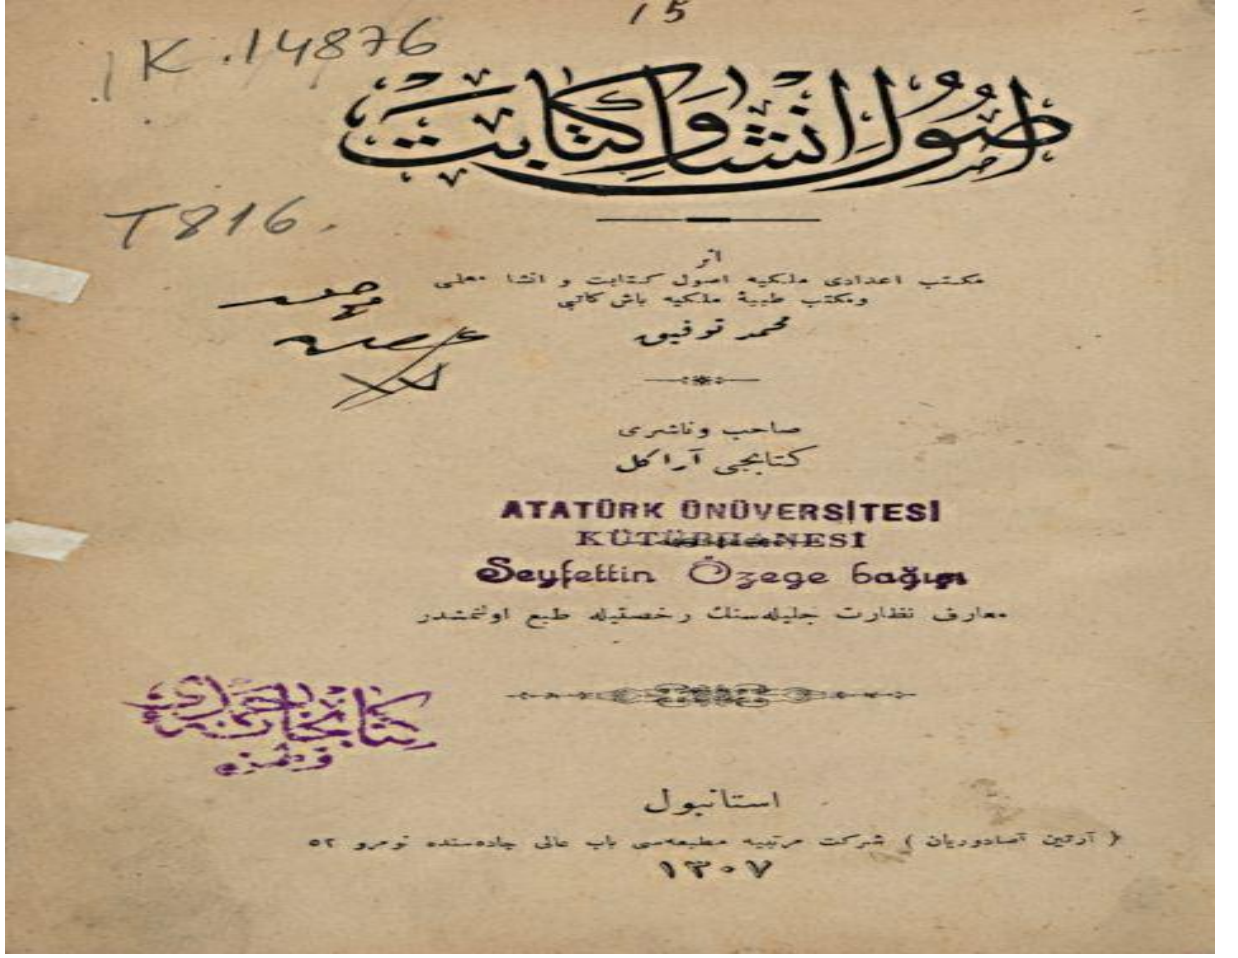 15
K.14876
اصول انشا و كتابت
T816.
اثر
مكتب اعدادی ملكیه اصول كتابت و انشا معلمی
ومكتب طبیهٔ ملكیه باش كاتبی
محمد توفیق
صاحب وناشری
كتابجی آراكل
ATATÜRK ÜNÜVERSİTESİ
KÜTÜBHANESİ
Seyfettin Özege bağışı
معارف نظارت جلیله‌سنك رخصتیله طبع اولنمشدر
استانبول
( آرتین آصادوریان ) شركت مرتبیه مطبعه‌سی باب عالی جاده‌سنده نومرو ٥٢
١٣٠٧